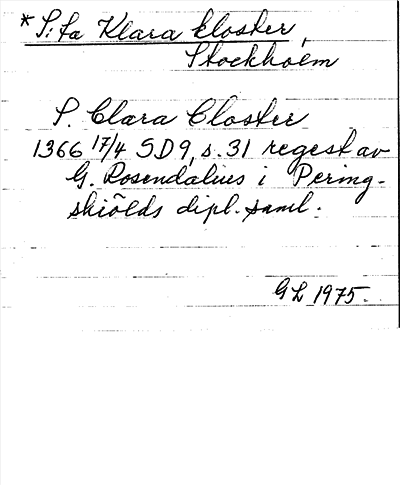 *S:ta Klara kloster,
Stockholm
S. Clara Closter
1366 17/4 SD9, s. 31 regest av
G. Rosendalius i Pering-
skiölds dipl. saml.
GL 1975.